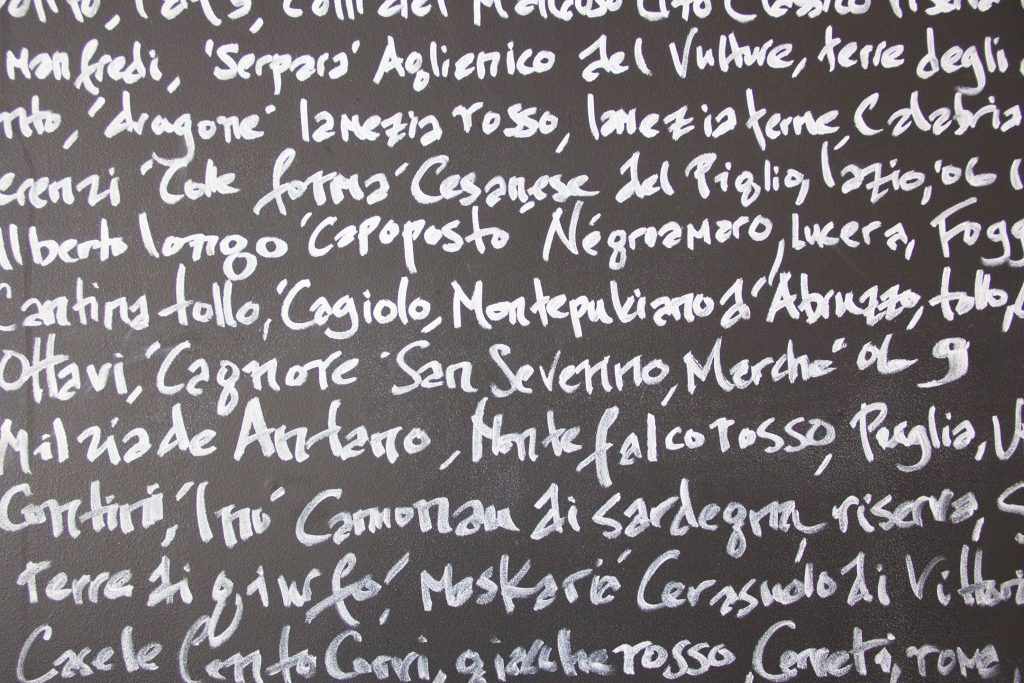 Manfredi, 'Serpara' Aglianico del Vulture, terre degli
'dragone' lamezia rosso, lamezia terme, Calabria
'Colle forma' Cesanese del Piglio, lazio, '06
Alberto longo 'Capoposto' Négroamaro, lucera, Fogg
Cantina tollo, 'Cagiolo, Montepulciano d'Abruzzo, tollo,
Ottavi, 'Cagnore' San Severino, Marche' 06 9
Milziade Antano, Montefalco rosso, Puglia,
Contini, 'Inu' Cannonau di sardegna, riserva,
terre di giurfo, Maskaria' Cerasuolo di Vittori
Casele Cento Corvi, giacche rosso, Cerveteri, roma,